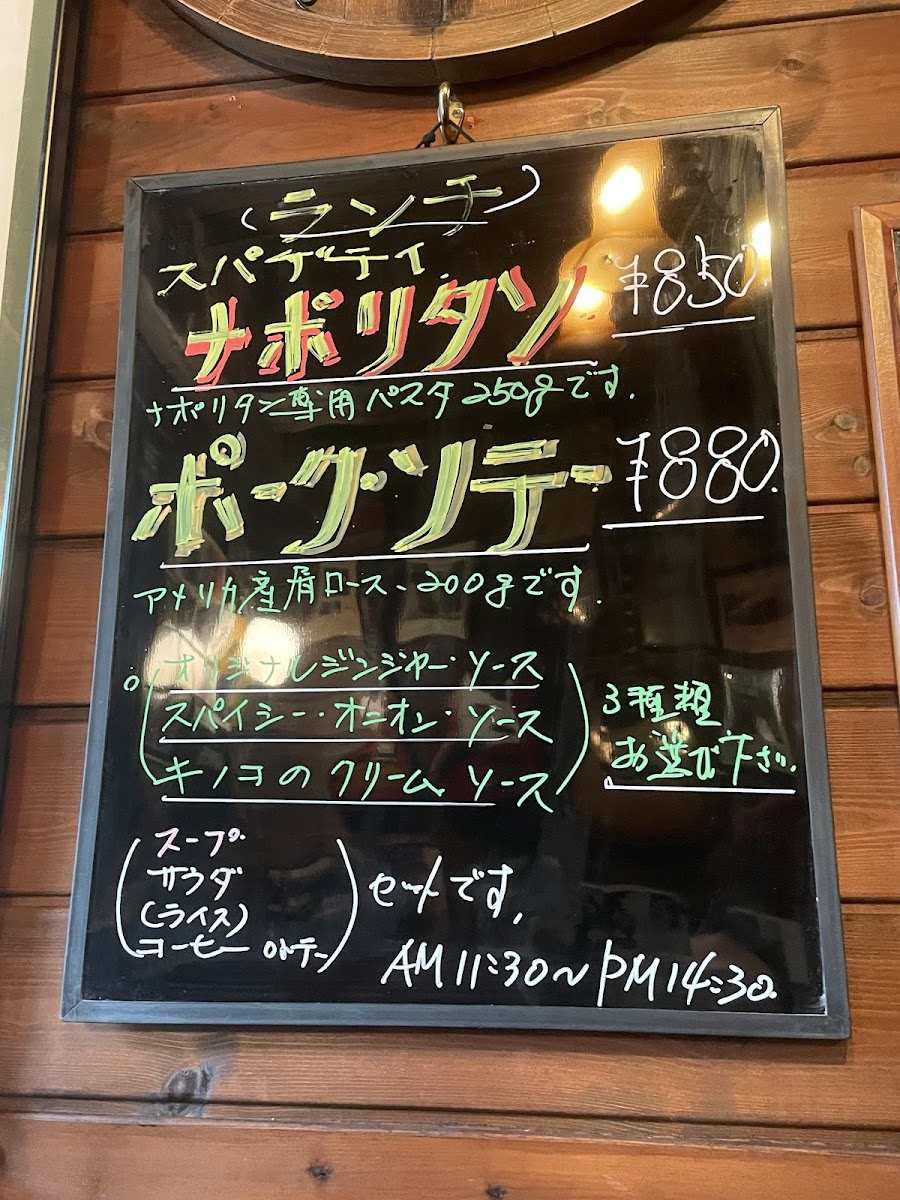 (ランチ)
スパゲティ
ナポリタン ¥850
ナポリタン専用パスタ250gです.
ポーク・ソテー ¥880.
アメリカ産肩ロース、200gです.
オリジナルジンジャー・ソース
スパイシー・オニオン・ソース
キノコのクリームソース
3種類
お選び下さい.
スープ
サラダ
(ライス)
コーヒー orテー
セットです,
AM11:30~PM14:30.